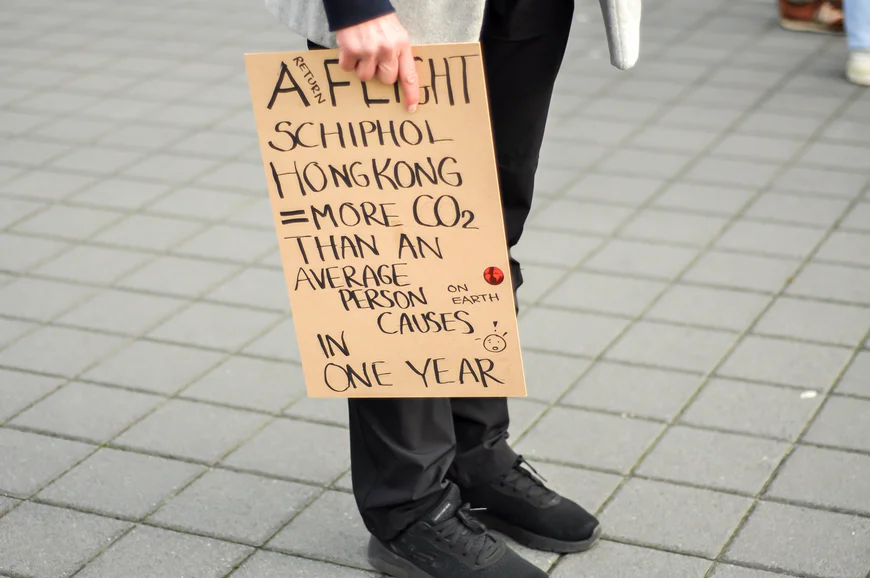 A RETURN FLIGHT
SCHIPHOL
HONGKONG
=MORE CO₂
THAN AN
AVERAGE
PERSON ON EARTH
CAUSES !
IN
ONE YEAR